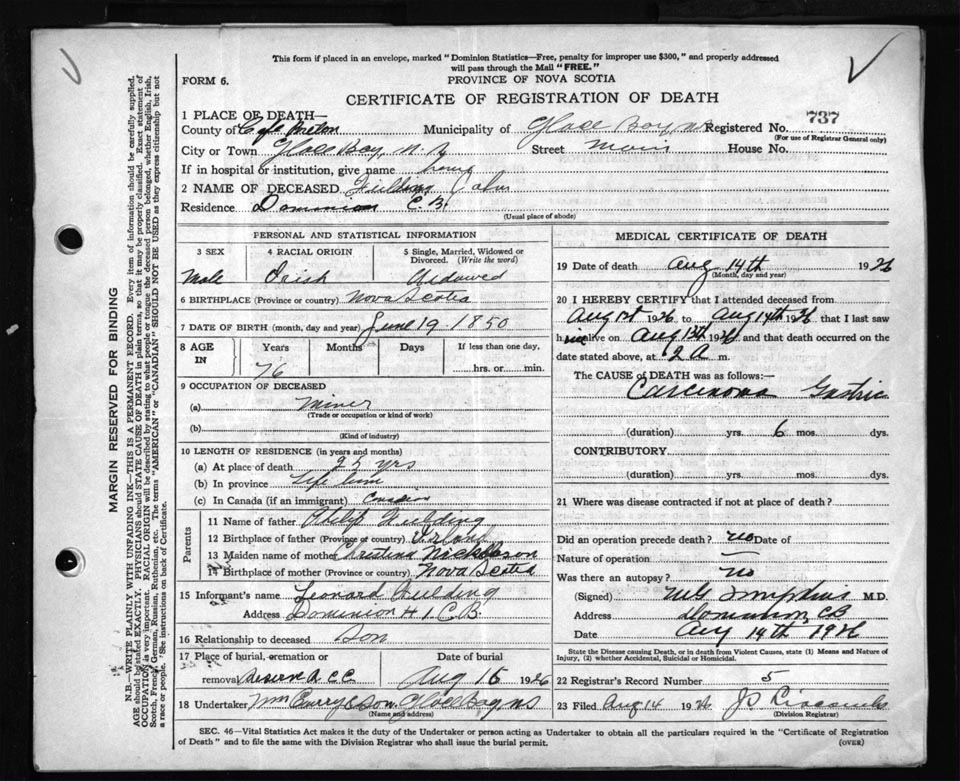 This form if placed in an envelope, marked "Dominion Statistics—Free, penalty for improper use $300," and properly addressed
will pass through the Mail "FREE."
FORM 6.
PROVINCE OF NOVA SCOTIA
CERTIFICATE OF REGISTRATION OF DEATH
1 PLACE OF DEATH—
County of Cape Breton Municipality of Glace Bay NS Registered No. 737
(For use of Registrar General only)
City or Town Glace Bay, N.S Street Main House No.
If in hospital or institution, give name home
2 NAME OF DECEASED Fielding
Residence Dominion C.B.
(Usual place of abode)
PERSONAL AND STATISTICAL INFORMATION
3 SEX 4 RACIAL ORIGIN 5 Single, Married, Widowed or Divorced. (Write the word)
Male Irish Widowed
6 BIRTHPLACE (Province or country) Nova Scotia
7 DATE OF BIRTH (month, day and year) June 19 1850
8 AGE IN Years Months Days If less than one day,
76 hrs. or min.
9 OCCUPATION OF DECEASED
(a) Miner
(Trade or occupation or kind of work)
(b)
(Kind of industry)
10 LENGTH OF RESIDENCE (in years and months)
(a) At place of death 25 yrs
(b) In province Life time
(c) In Canada (if an immigrant) Canadian
Parents
11 Name of father Fielding
12 Birthplace of father (Province or country) Irland
13 Maiden name of mother Christina Nickolson
14 Birthplace of mother (Province or country) Nova Scotia
15 Informant's name Leonard Fielding
Address Dominion #1 C.B.
16 Relationship to deceased Son
17 Place of burial, cremation or Date of burial
removal Reserve R C C Aug 16 1926
18 Undertaker Wm Curry & Son Glace Bay NS
(Name and address)
MEDICAL CERTIFICATE OF DEATH
19 Date of death Aug 14th 1926
(Month, day and year)
20 I HEREBY CERTIFY that I attended deceased from
Aug 1st 1926 to Aug 14th 1926 that I last saw
him alive on Aug 13th 1926 and that death occurred on the
date stated above, at 12 A m.
The CAUSE of DEATH was as follows:—
Carcinoma Gastric
(duration) yrs. 6 mos. dys.
CONTRIBUTORY
(duration) yrs. mos. dys.
21 Where was disease contracted if not at place of death?
Did an operation precede death? no Date of
Nature of operation —
Was there an autopsy? No
(Signed) MG Tompkins M.D.
Address Dominion, CB
Date Aug 14th 1926
State the Disease causing Death, or in death from Violent Causes, state (1) Means and Nature of
Injury, (2) whether Accidental, Suicidal or Homicidal.
22 Registrar's Record Number 5
23 Filed Aug 14 1926
(Division Registrar)
SEC. 46—Vital Statistics Act makes it the duty of the Undertaker or person acting as Undertaker to obtain all the particulars required in the "Certificate of Registration
of Death" and to file the same with the Division Registrar who shall issue the burial permit.
(OVER)
MARGIN RESERVED FOR BINDING
N.B.—WRITE PLAINLY WITH UNFADING INK—THIS IS A PERMANENT RECORD. Every item of information should be carefully supplied.
AGE should be stated EXACTLY. PHYSICIANS should STATE CAUSE OF DEATH in plain terms, so that it may be properly classified. Exact statement of
OCCUPATION is very important. RACIAL ORIGIN will be described by stating to what people or tongue the deceased person belonged, whether English, Irish,
Scotch, French, German, Russian, Ruthenian, etc. The terms "AMERICAN" or "CANADIAN" SHOULD NOT BE USED as they express citizenship but not
a race or people. See instructions on back of Certificate.